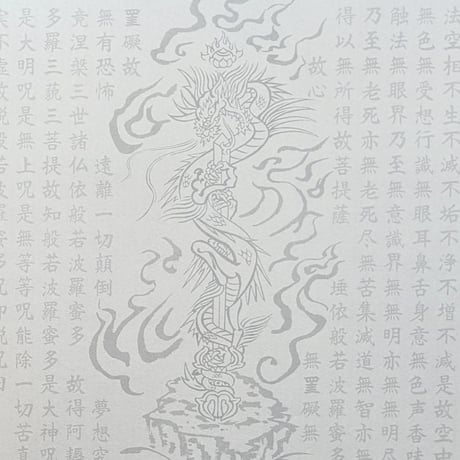 法空相不生不滅不垢不浄不増不減是故空中
無色無受想行識無眼耳鼻舌身意無色声香味
触法無眼界乃至無意識界無無明亦無無明尽
乃至無老死亦無老死尽無苦集滅道無智亦無
得以無所得故菩提薩 埵依般若波羅蜜多
故心 無罣礙無
罣礙故
無有恐怖 遠離一切顛倒 夢想究
竟涅槃三世諸仏依般若波羅蜜多 故得阿耨
多羅三藐三菩提故知般若波羅蜜多是大神呪
是大明呪是無上呪是無等等呪能除一切苦真